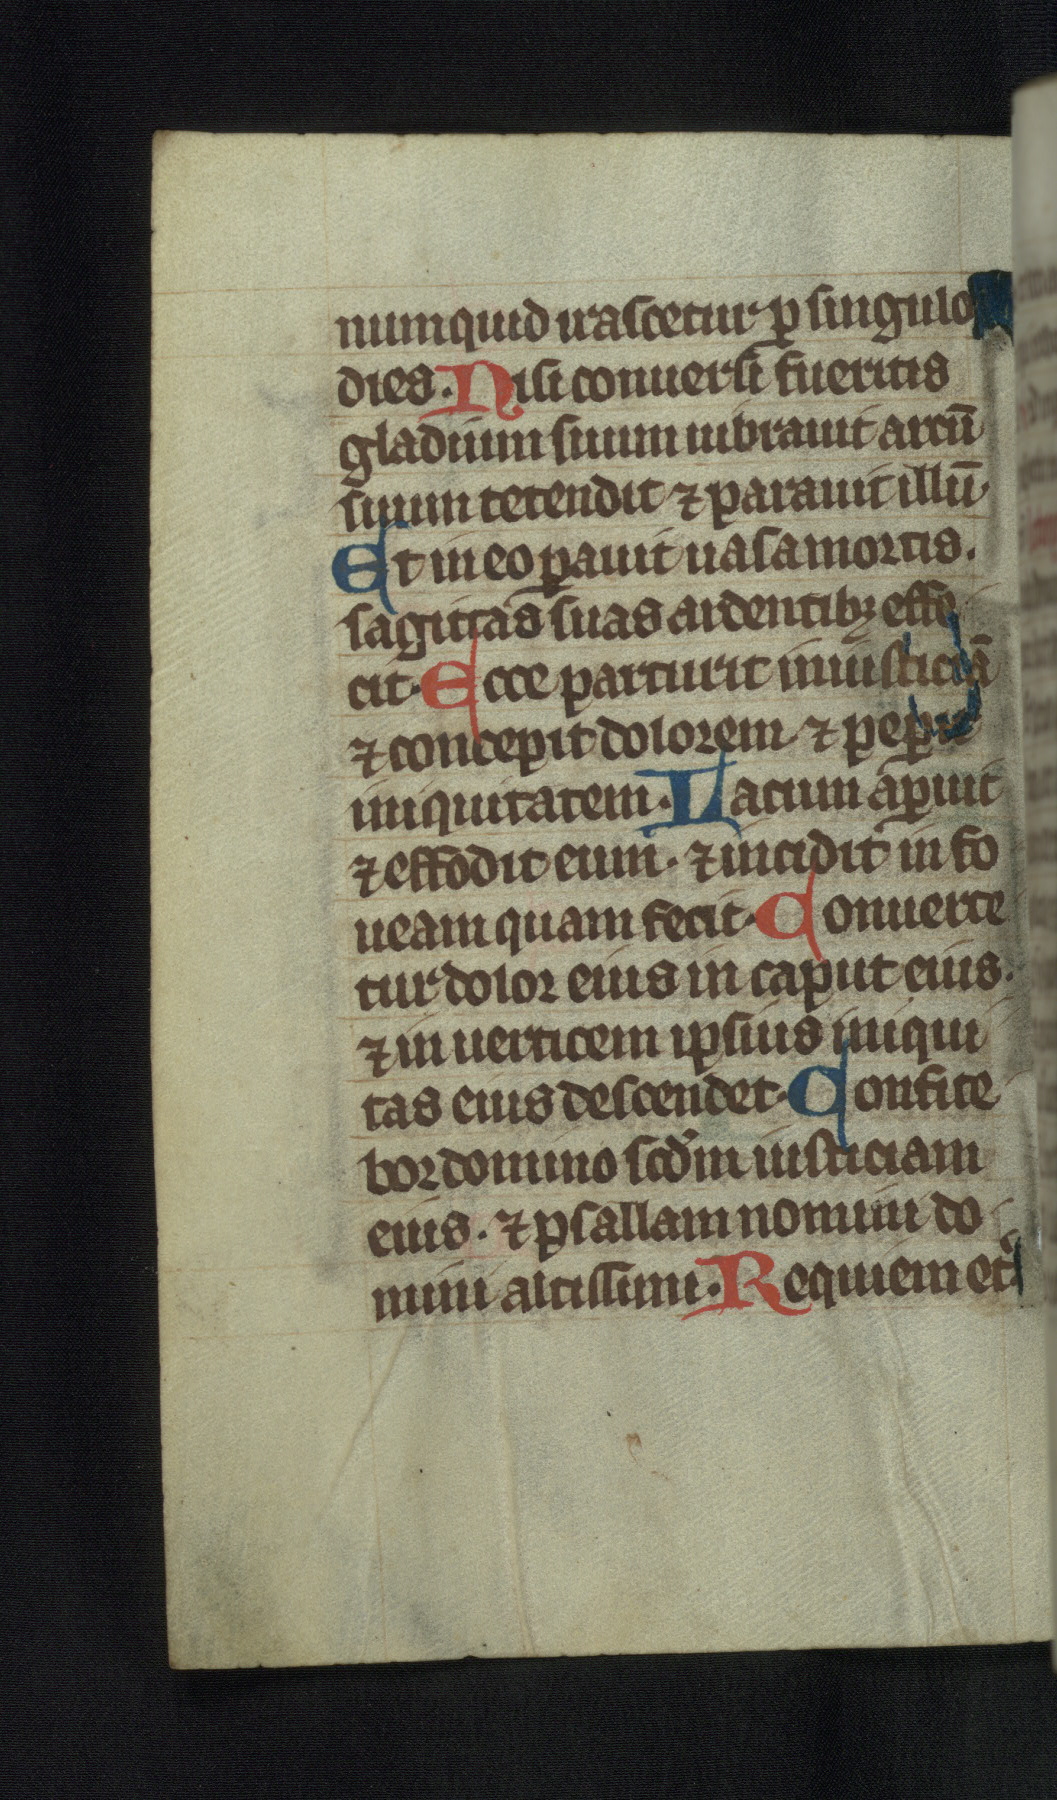 numquid irascetur ꝑ singulos
dies. Nisi conuersi fueritis
gladium suum uibrauit arcū
suum tetendit ⁊ parauit illū.
Et in eo ꝑauit uasa mortis.
sagittas suas ardentibꝫ effe
cit. Ecce parturit iniusticiā
⁊ concepit dolorem. ⁊ peꝑit
iniquitatem. Lacum aꝑuit
⁊ effodit eum. ⁊ incidit in fo
ueam quam fecit. Conuerte
tur dolor eius in caput eius.
⁊ in uerticem ipsius iniqui
tas eius descendet. Confite
bor domino scd̄m iusticiam
eius. ⁊ psallam nomini do
mini altissimi. Requiem et͛